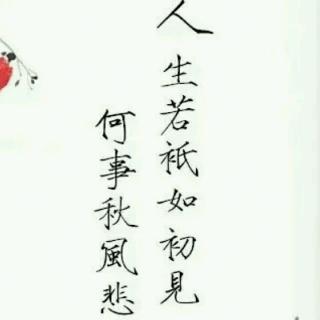 人生若衹如初見
何事秋風悲